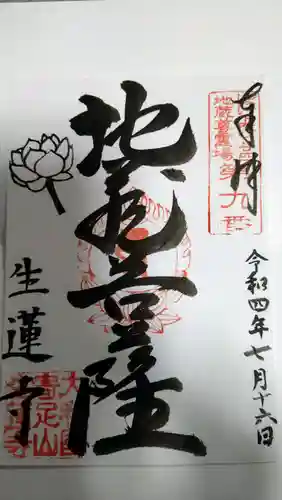 奉拝
地蔵尊霊場第九番
令和四年七月十六日
地蔵菩薩
生蓮寺